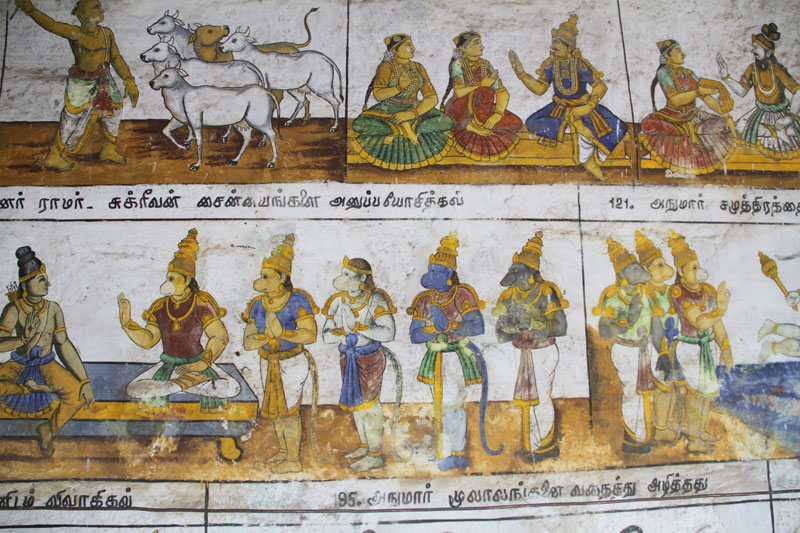 னர் ராமர் - சுக்ரீவன் சைன்யைங்களை அனுப்பயோசிக்கல்
121. அநுமார் சமுத்திரத்தை
னிடம் விவாகிகல்
195. அநுமார் மூலாலங்களை வதைத்து அழித்தது